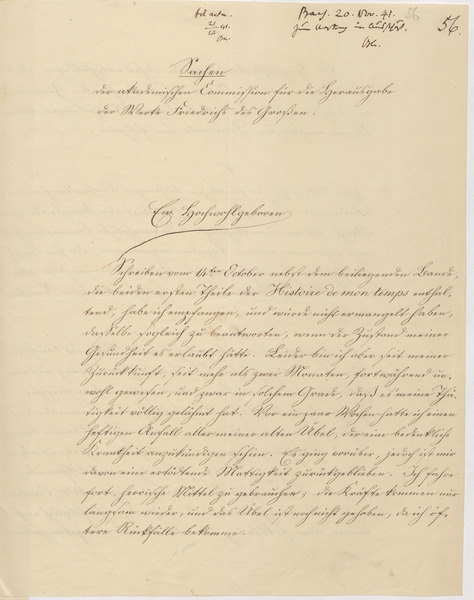 ad acta.
56
Bas. 20. Nov. 41.
56.
21/12 41.
Bh.
zum Vortrag in
Bh.
Sachen
der akademischen Commission für die Herausgabe
der Werke Friedrichs des Großen.
Ew. Hochwohlgeboren
Schreiben vom 14ten October nebst dem beiliegenden Bande,
die beiden ersten Theile der Histoire de mon temps enthal-
tend, habe ich empfangen, und würde nicht ermangelt haben,
dasselbe sogleich zu beantworten, wenn der Zustand meiner
Gesundheit es erlaubt hätte. Leider bin ich aber seit meiner
Zurückkunft, seit mehr als zwei Monaten, fortwährend un-
wohl gewesen, und zwar in solchem Grade, daß es meine Thä-
tigkeit völlig gelähmt hat. Vor ein paar Wochen hatte ich einen
heftigen Anfall aller meiner alten Übel, der eine bedenkliche
Krankheit anzukündigen schien. Es ging vorüber, jedoch ist mir
davon eine ertödtende Mattigkeit zurückgeblieben. Ich fahre
fort, heroische Mittel zu gebrauchen; die Kräfte kommen nur
langsam wieder, und das Übel ist noch nicht gehoben, da ich öf-
tere Rückfälle bekomme.